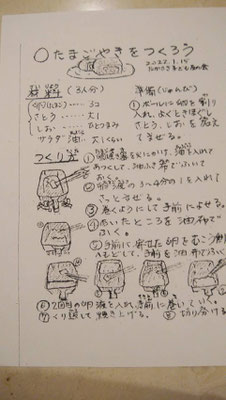 ○たまごやきをつくろう
2022.1.15
材料 (3人分)
たまご ‥‥ 3コ
さとう ‥‥ 大1
しお ‥‥ ひとつまみ
サラダ油 ‥ 大1くらい
準備(じゅんび)
①ボールに卵を割り
入れ、よくときほぐし
さとう、しおを加え
てまぜる。
つくり方
①
火にかけ、油を入れて
あつくして、
おく。
②卵液の3〜4分の1を入れて
さっとまぜる。
③巻くようにして手前によせる。
④あいたところを油ふきで
ふく。
⑤手前に寄せた卵をむこう側
へもどして、手前を油ふきでふく
⑥2回目の卵液を入れ、手前に巻いていく。
⑦くり返して焼き上げる。
⑧切り分ける